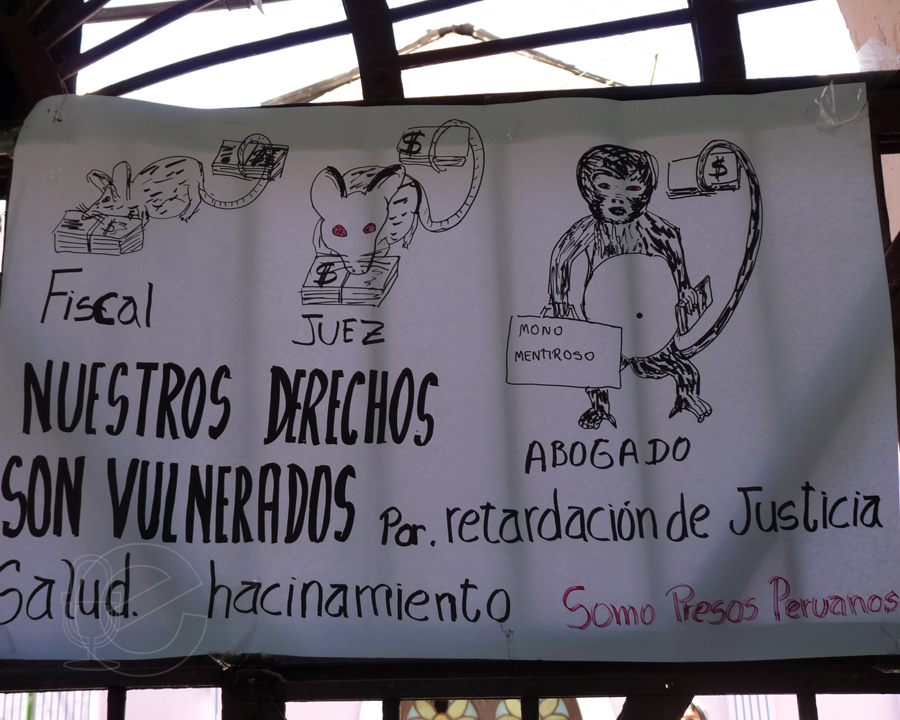 $
$
$
$
$
$
Fiscal
JUEZ
MONO
MENTIROSO
ABOGADO
NUESTROS DERECHOS
SON VULNERADOS Por. retardación de Justicia
Salud. hacinamiento Somo Presos Peruanos
e